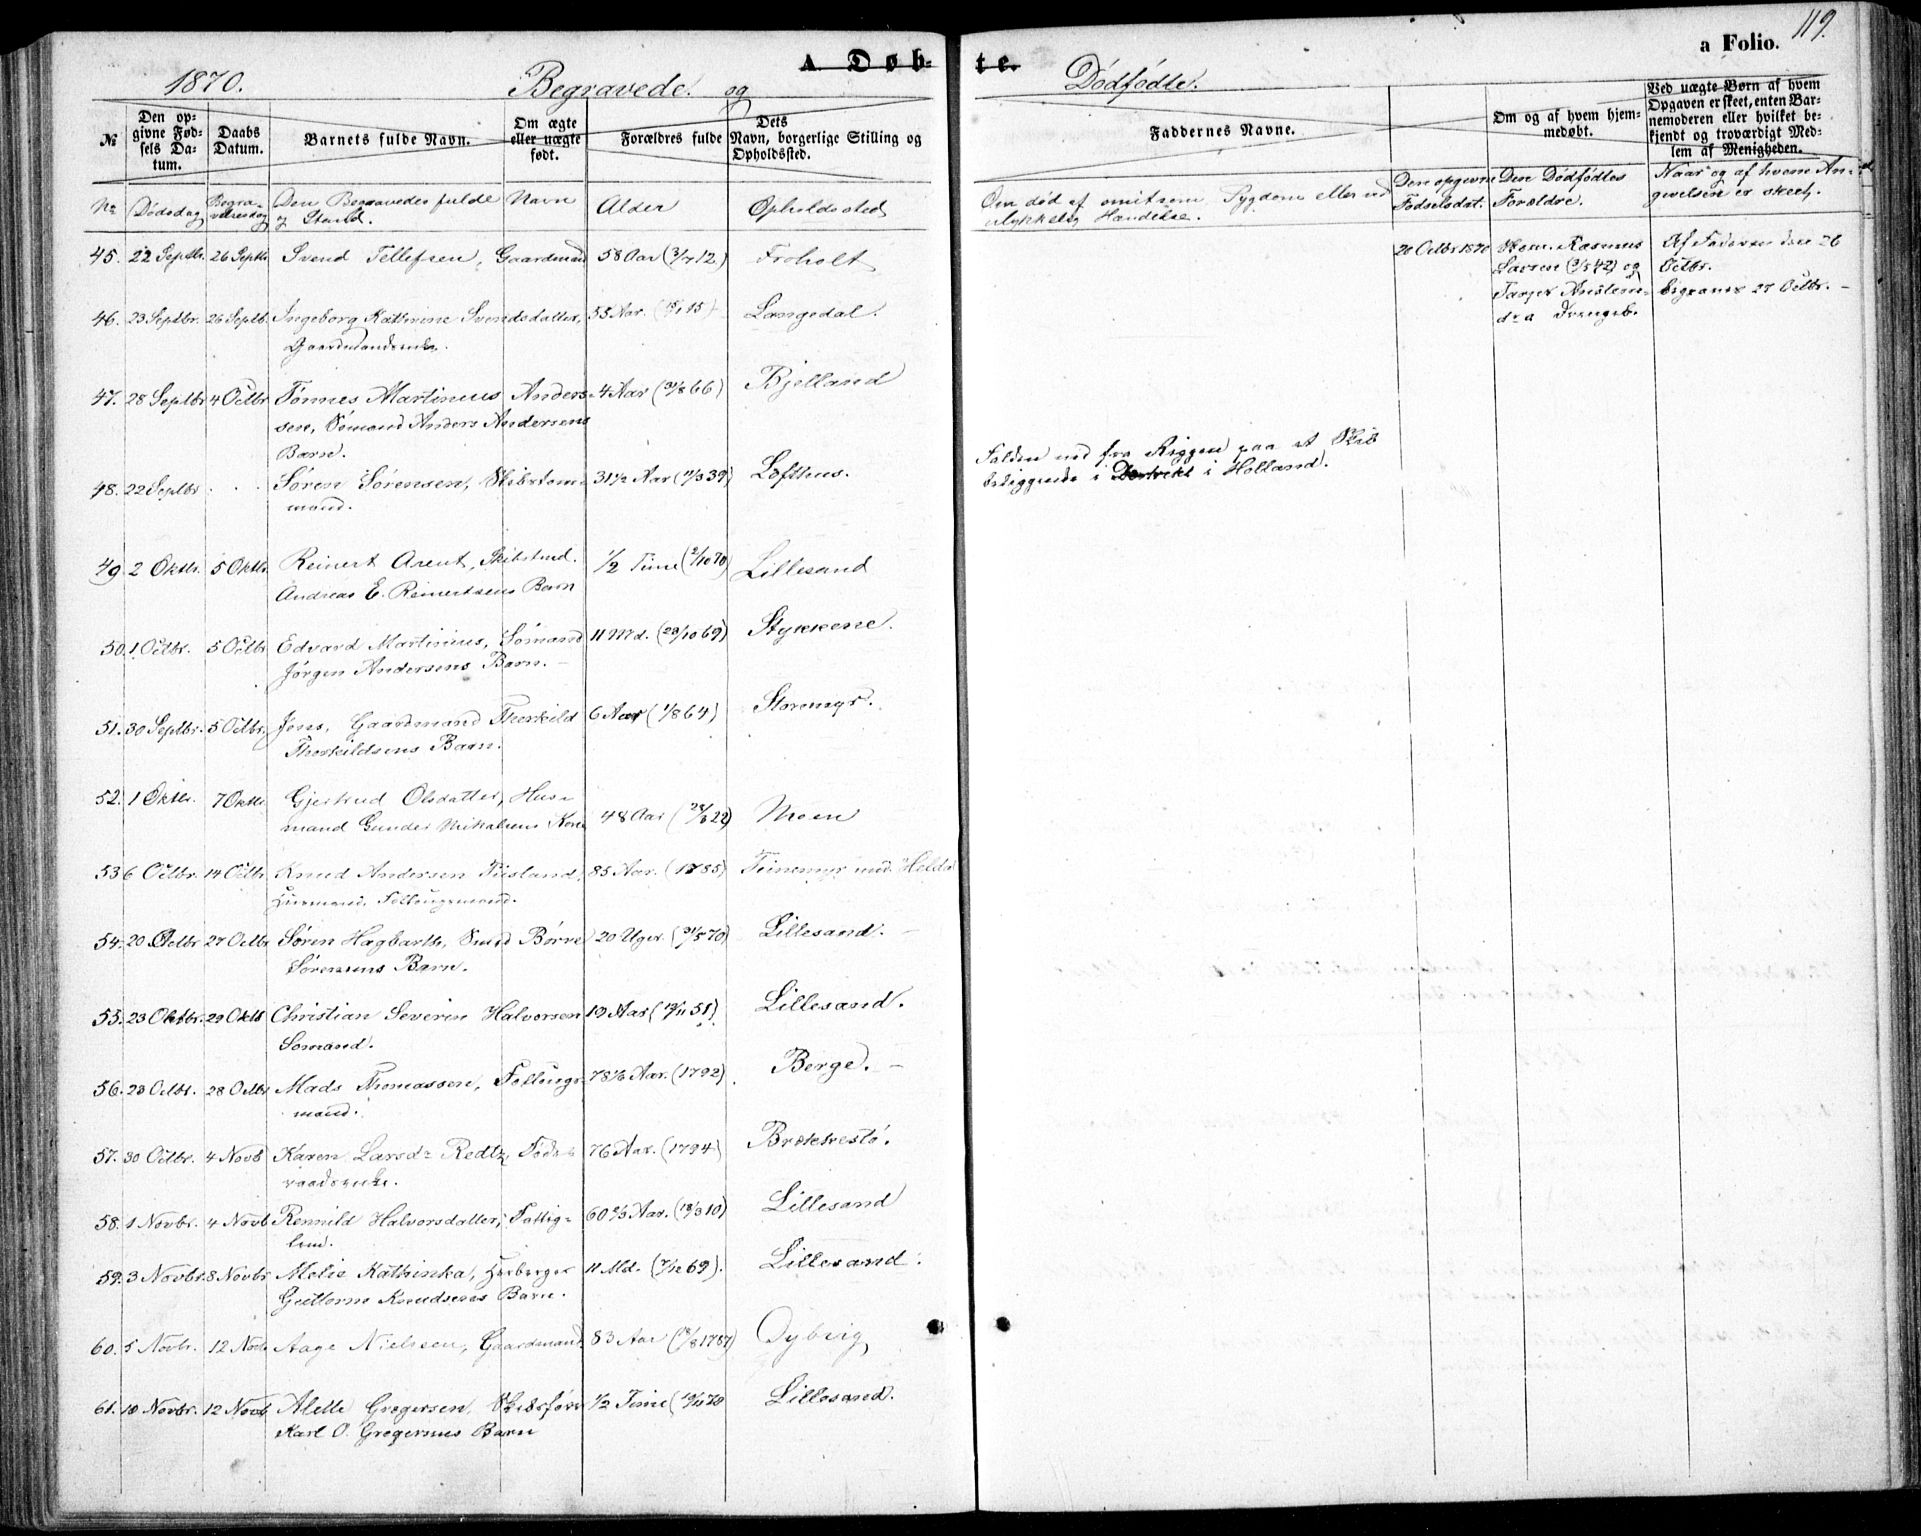 119.
a Folio.
A Døb-te.
1870. Begravede. og Dødfødte.
№
Den opgivne Fødsels Datum.
Daabs Datum.
Barnets fulde Navn.
Om ægte eller uægte født.
Forældres fulde Navn, borgerlige Stilling og Opholdssted.
Dets
Faddernes Navne.
Om og af hvem hjemmedøbt.
Ved uægte Børn af hvem Opgaven er skeet, enten Barnemoderen eller hvilket bekjendt og troværdigt Medlem af Menigheden.
No Dødsdag Begravelsesdag Den Begravedes fulde Navn og Stand. Alder Opholdssted
Om død af smitsom Sygdom eller ved ulykkelig Hændelse.
Den opgevne Fødselsdat.
Den Dødfødtes Forældre.
Naar og af hvem Angivelsen er skeet.
45. 22 Septbr. 26 Septb. Svend Tellefsen, Gaardmand 58 Aar (3/7 12) Froholt
20 Octbr 1870 Skom. Rasmus
Larsen (3/5 42) og
Targer Anstens
dr a Trængsb.
Af Faderen den 26
Octbr.
begravet 27 Octbr. -
46. 23 Septbr. 26 Septb. Ingeborg Kathrine Svendsdatter, 55 Aar. Langedal.
Gaardmandsenke.
47. 28 Septbr 4 Octbr Tønnes Martinius Anders- 4 Aar (31/8 66) Bjelland
sen, Sømand Anders Andersens
Barn.
48. 22 Septbr . . Søren Sørensen, Skibstømmer- 31 1/2 Aar (11/3 39) Lofthus.
mand.
Falden ned fra Riggen paa et Skib
beliggende i Dortrekt i Holland.
49 2 Oktbr. 5 Oktbr. Reinert Arent, Skibstmd. 1/2 Time (2/10 70) Lillesand
Andreas E. Reinertsens Barn
50. 1 Octbr. 5 Octbr Edvard Martinius, Sømand 11 Md. (28/10 69) Stykkene.
Jørgen Andersens Barn. -
51. 30 Septbr. 5 Octbr. Jens, Gaardmand Therkild 6 Aar (1/8 64) Storemyr.
Therkildsens Barn.
52. 1 Oktbr. 7 Oktbr Gjertrud Olsdatter, Hus-
mand Gunder Mikalsens Kone 48 Aar Moen
53 6 Octbr. 14 Octb. Knud Andersen Tiisland, 85 Aar. (1785) Teinemyr
Huusmand, Føllaugsmand.
54. 20 Octbr 27 Octbr Søren Hagbarth, Smed Børre 20 Uger. (31/5 70) Lillesand. -
Sørensens Barn.
55. 23 Oktbr. 29 Oktb Christian Severin Halvorsen 19 Aar (13/11 51) Lillesand.
Sømand.
56. 23 Octbr. 28 Octbr Mads Thomassen, Føllaugs- 78 1/6 Aar. (1792). Berge. -
mand.
57. 30 Octbr. 4 Novb Karen Larsdr Redtz, Føde- 76 Aar. (1794) Brekkestø.
raadsenke.
58. 1 Novbr. 4 Novb Rennild Halvorsdatter, Fattig- 60 2/3 Aar. (13/3 10) Lillesand
lem.
59. 3 Novbr. 8 Novbr Melie Kathinka, Herberger 11 Md. (7/12 69). Lillesand.
Guttorm Knudsens Barn.
60. 5 Novbr. 12 Novb Aage Nielssen, Gaardmand. 83 Aar (13/8 1787) Øybvig
61. 10 Novbr. 12 Novb. Alette Gregersen, Skibsfører 1/2 Time (10/11 70 Lillesand.
Karl O. Gregersens Barn